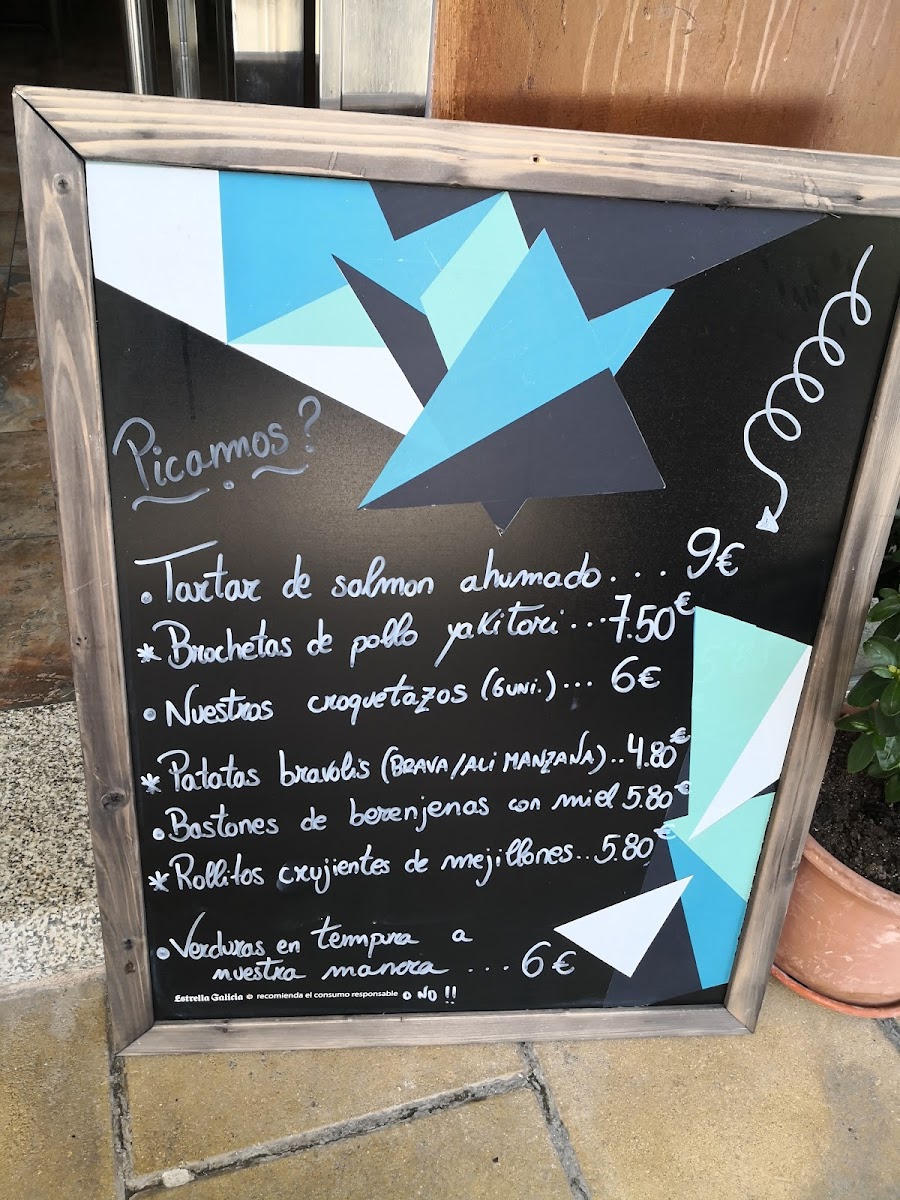 Picamos?
• Tartar de salmon ahumado... 9€
* Brochetas de pollo yakitori...7.50€
• Nuestros croquetazos (6uni.)... 6€
* Patatas bravolis (BRAVA/ALI MANZANA)..4.80€
• Bastones de berenjenas con miel 5.80€
* Rollitos crujientes de mejillones...5.80€
• Verduras en tempura a
nuestra manera ... 6€
Estrella Galicia recomienda el consumo responsable O NO!!